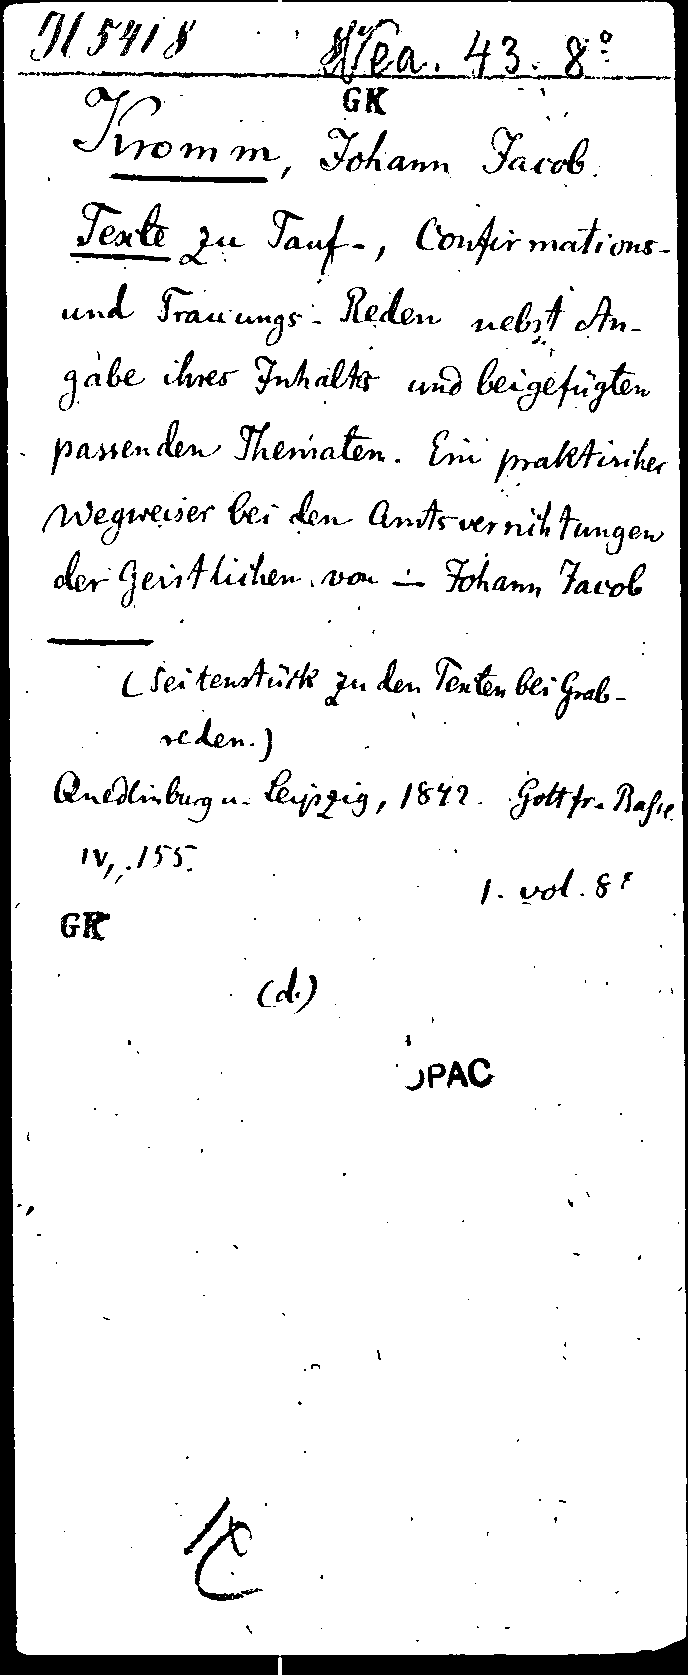 H 5418 Nea. 43. 8°
GK
Kromm, Johann Jacob.
Texte zu Tauf-, Confirmations-
und Trauungs-Reden nebst An-
gabe ihres Inhalts und beigefügten
passenden Thematen. Ein praktischer
Wegweiser bei den Amtsverrichtungen
der Geistlichen von — Johann Jacob
(Seitenstück zu den Texten bei Grab-
reden.)
Quedlinburg u. Leipzig, 1842. Gottfr. Basse.
IV, 155.
1. vol. 8°
GK
(d.)
OPAC